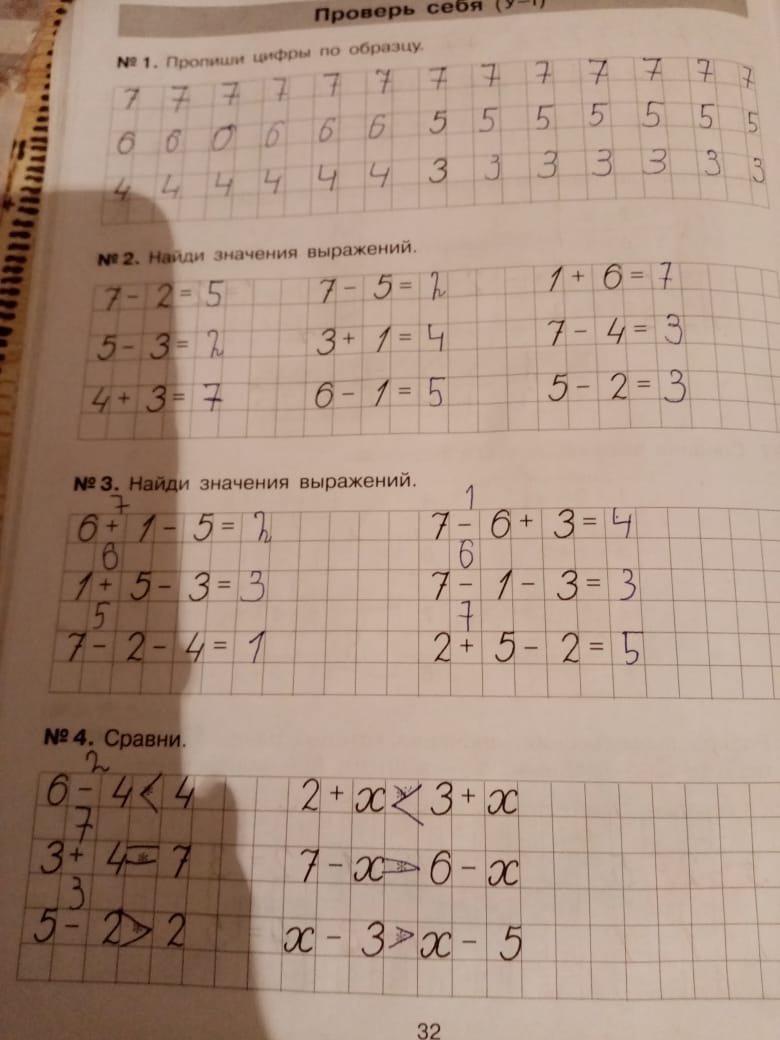 Проверь себя (У–1)
№ 1. Пропиши цифры по образцу.
7 7 7 7 7 7 7 7 7 7 7 7 7
6 6 0 6 6 6 5 5 5 5 5 5 5
4 4 4 4 4 4 3 3 3 3 3 3 3
№ 2. Найди значения выражений.
7 - 2 = 5 7 - 5 = 2 1 + 6 = 7
5 - 3 = 2 3 + 1 = 4 7 - 4 = 3
4 + 3 = 7 6 - 1 = 5 5 - 2 = 3
№ 3. Найди значения выражений.
7 1
6 + 1 - 5 = 2 7 - 6 + 3 = 4
6 6
1 + 5 - 3 = 3 7 - 1 - 3 = 3
5 7
7 - 2 - 4 = 1 2 + 5 - 2 = 5
№ 4. Сравни.
2
6 - 4 < 4 2 + x < 3 + x
7
3 + 4 = 7 7 - x > 6 - x
3
5 - 2 > 2 x - 3 > x - 5
32